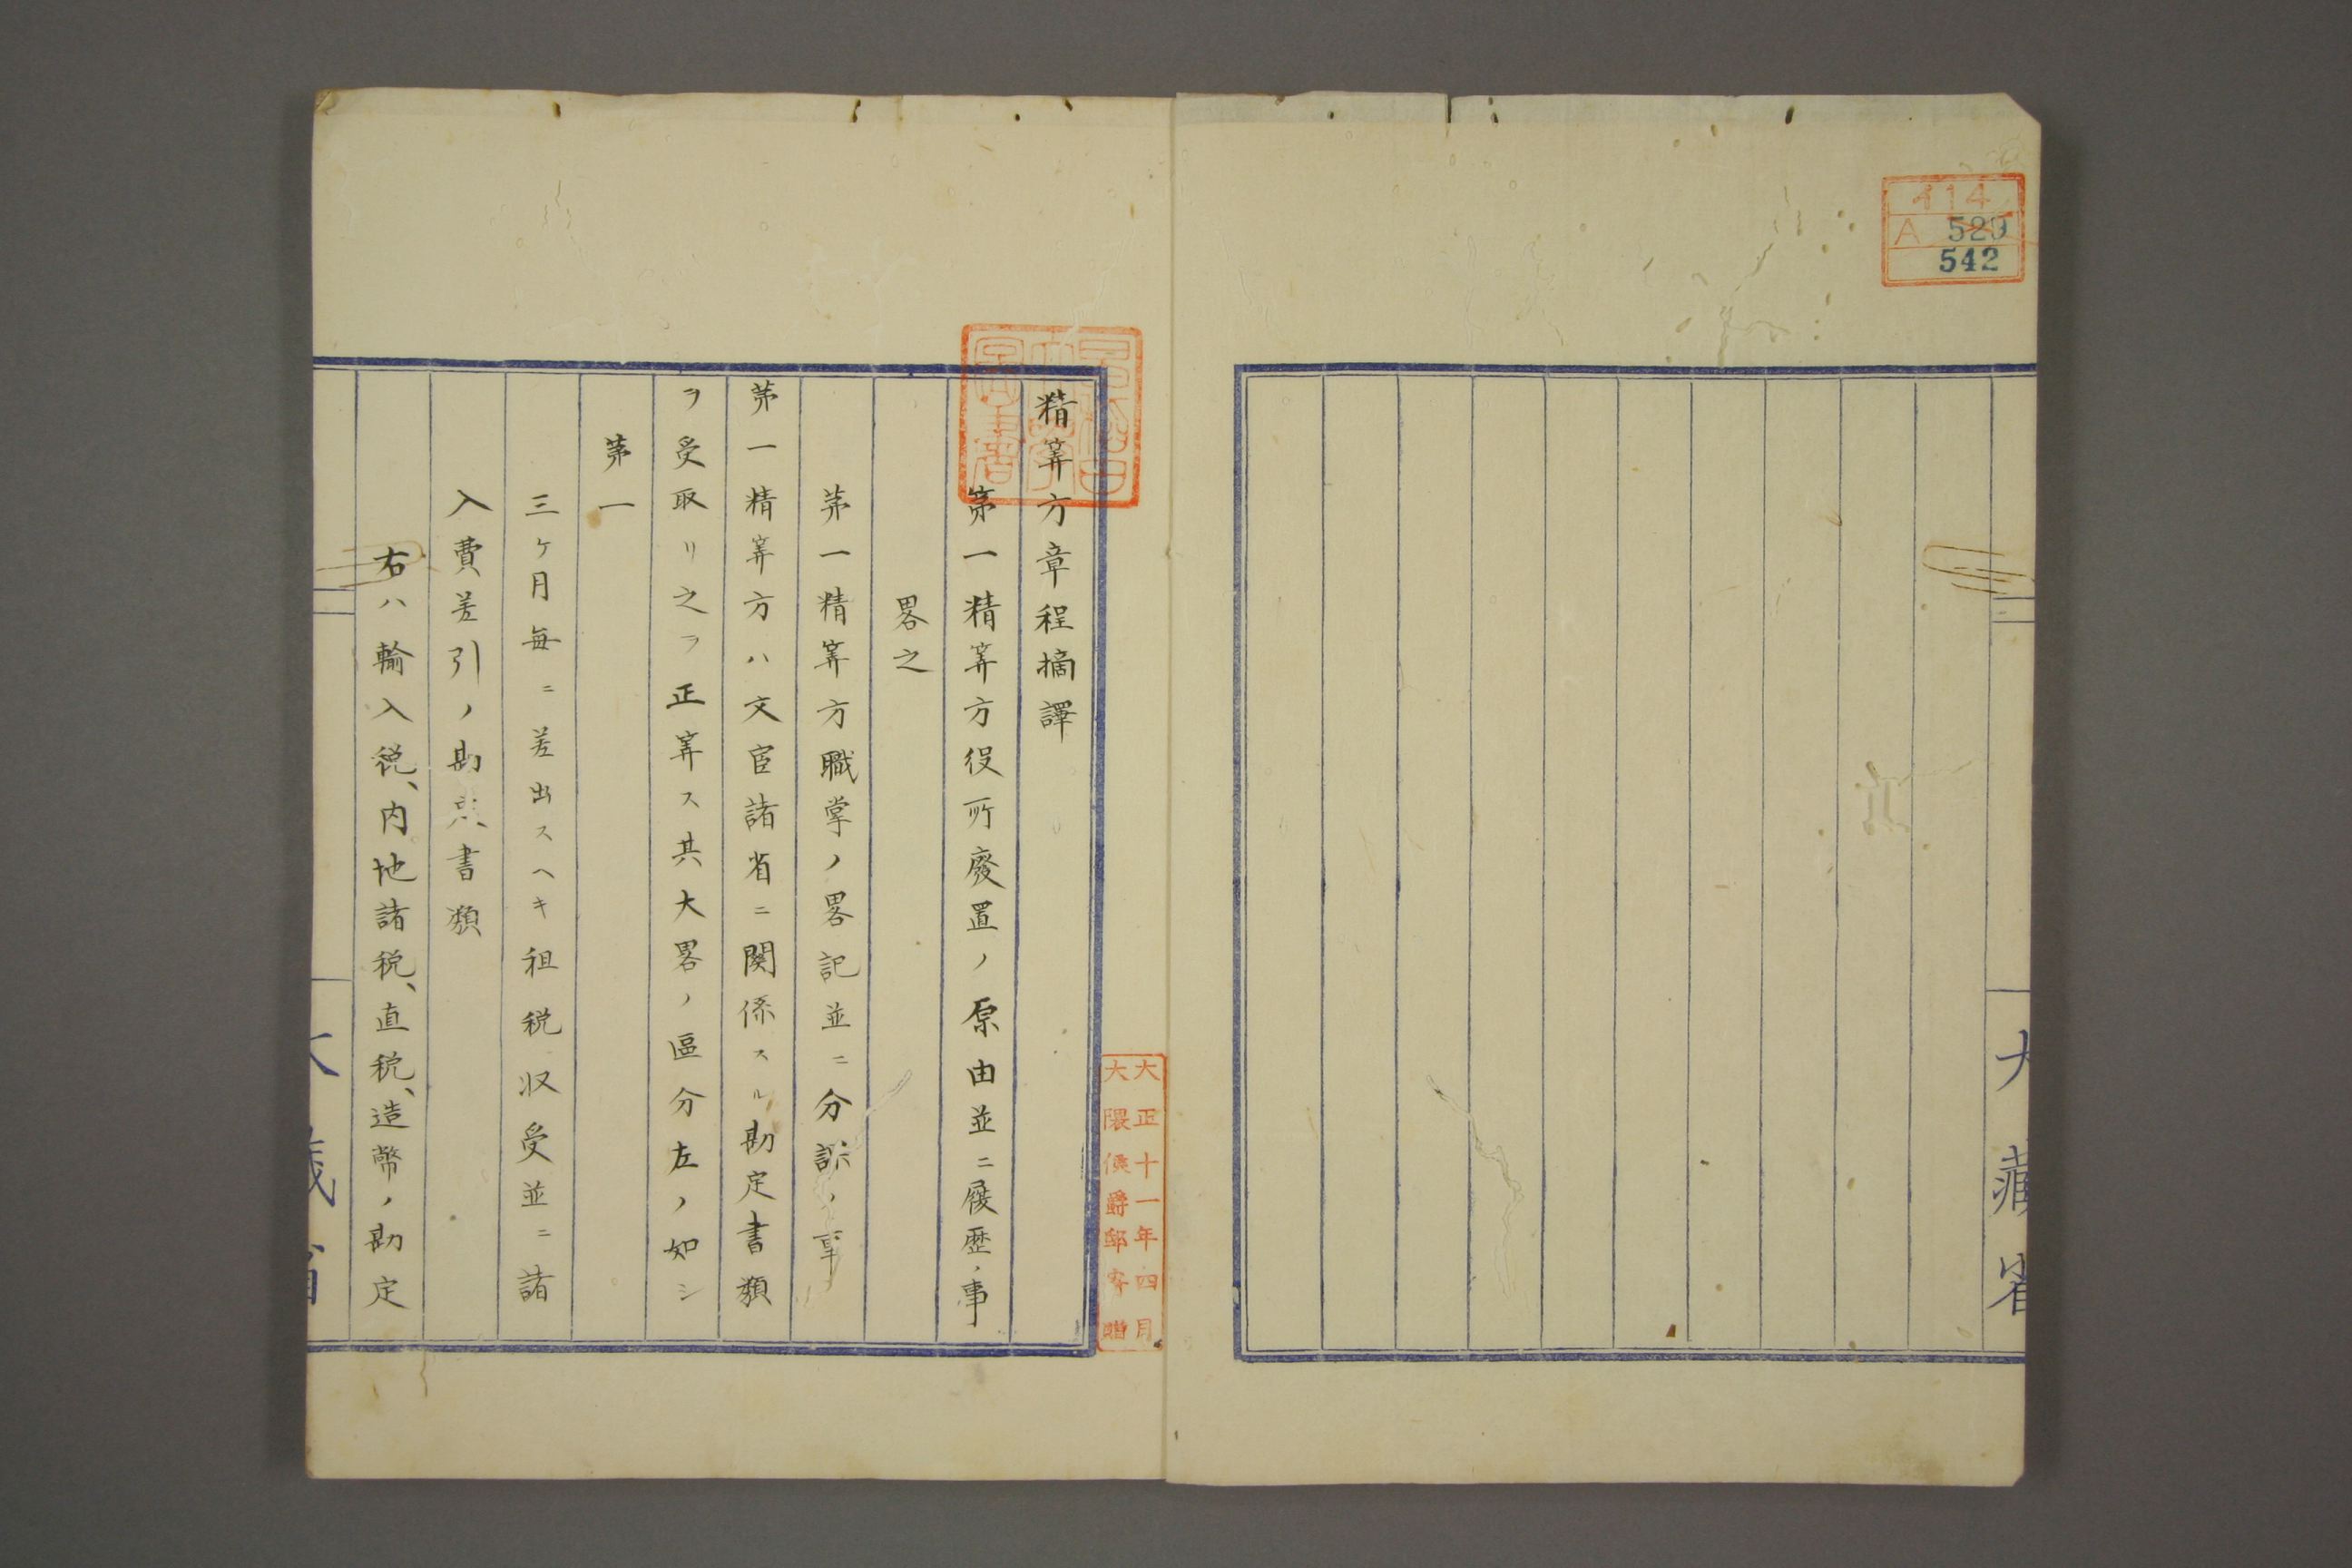 イ14
A 529
542
大藏省
精筭方章程摘譯
第一精筭方役所廢置ノ原由並ニ履歴ノ事
畧之
第一精筭方職掌ノ畧記並ニ分課ノ事
第一精筭方ハ文官諸省ニ関係スル勘定書類
ヲ受取リ之ヲ正筭ス其大畧ノ區分左ノ如シ
第一
三ケ月毎ニ差出スヘキ租税収受並ニ諸
入費差引ノ勘定書類
右ハ輸入税、内地諸税、直税、造幣ノ勘定
大藏省
早稲田
大學
圖書
大正十一年四月
大隈侯爵邸寄贈